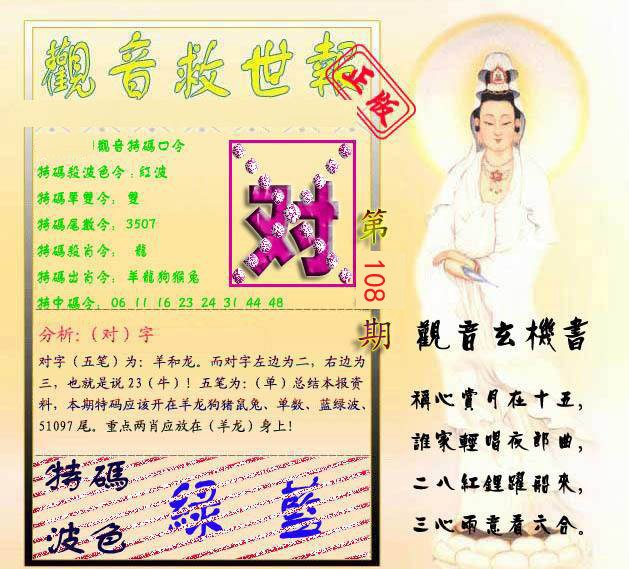 觀音救世報
正版
觀音特碼口令
特碼殺波色令：紅波
特碼單雙令： 雙
特碼尾數令： 3507
特碼殺肖令： 龍
特碼出肖令： 羊龍狗猴兔
特中碼令： 06 11 16 23 24 31 44 48
对
第
108
期
分析:（对）字
对字（五笔）为：羊和龙。而对字左边为二，右边为
三，也就是说 23（牛）！五笔为：（单）总结本报资
料，本期特码应该开在羊龙狗猪鼠兔、单数、蓝绿波、
51097 尾。重点两肖应放在（羊龙）身上！
特碼
波色
綠 藍
觀音玄機書
稱心賞月在十五，
誰家輕唱夜郎曲，
二八紅鯉躍船來，
三心兩意看六合。